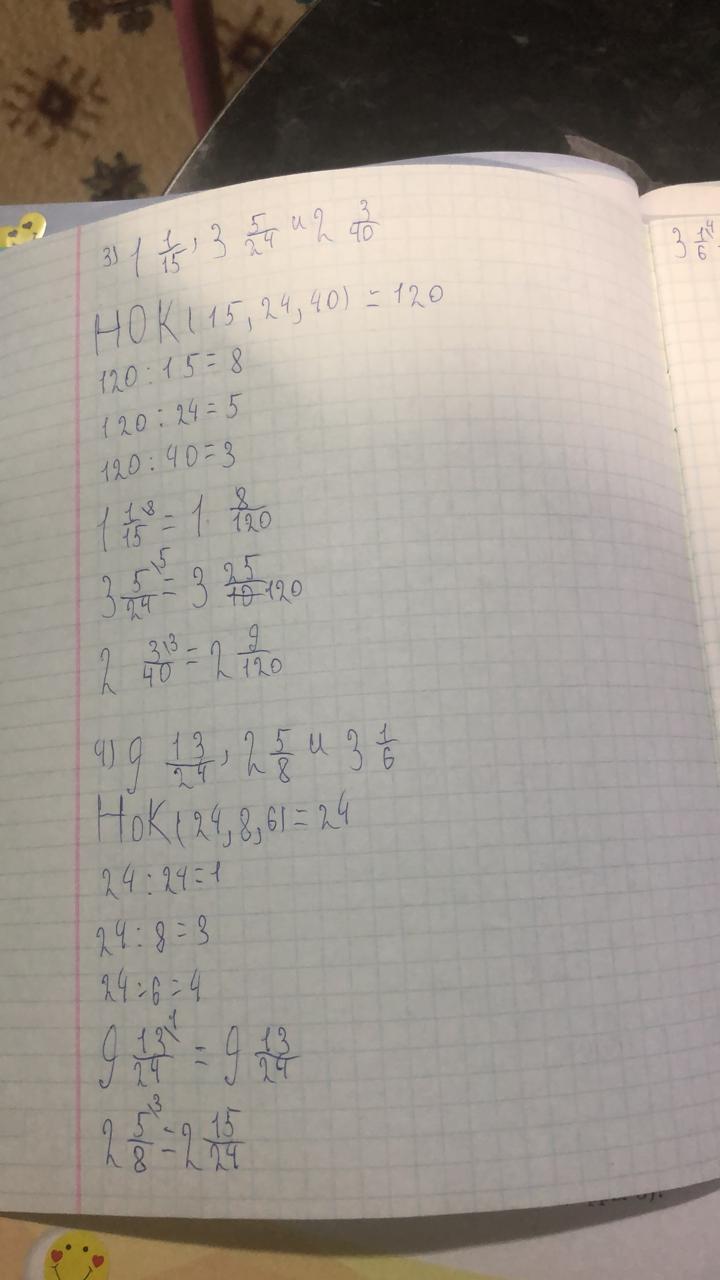 3) 1 1/15, 3 5/24 и 2 3/40
НОК(15,24,40) = 120
120:15=8
120:24=5
120:40=3
1 1\8/15 = 1 8/120
3 5\5/24 = 3 25/120
2 3\3/40 = 2 9/120
4) 9 13/24, 2 5/8 и 3 1/6
НоК(24,8,6)=24
24:24=1
24:8=3
24:6=4
9 13\1/24 = 9 13/24
2 5\3/8 = 2 15/24
3 1\4/6